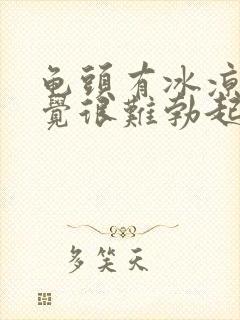 龟頭有冰凉
覺很難勃起
多笑天